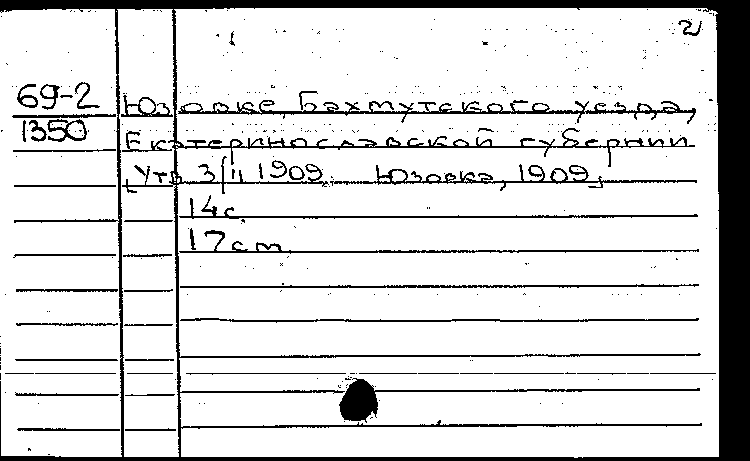 2
69-2 Юзовке, Бахмутского уезда,
1350 Екатеринославской губернии
[Утв. 3/II 1909. Юзовка, 1909]
14 с.
17 cm